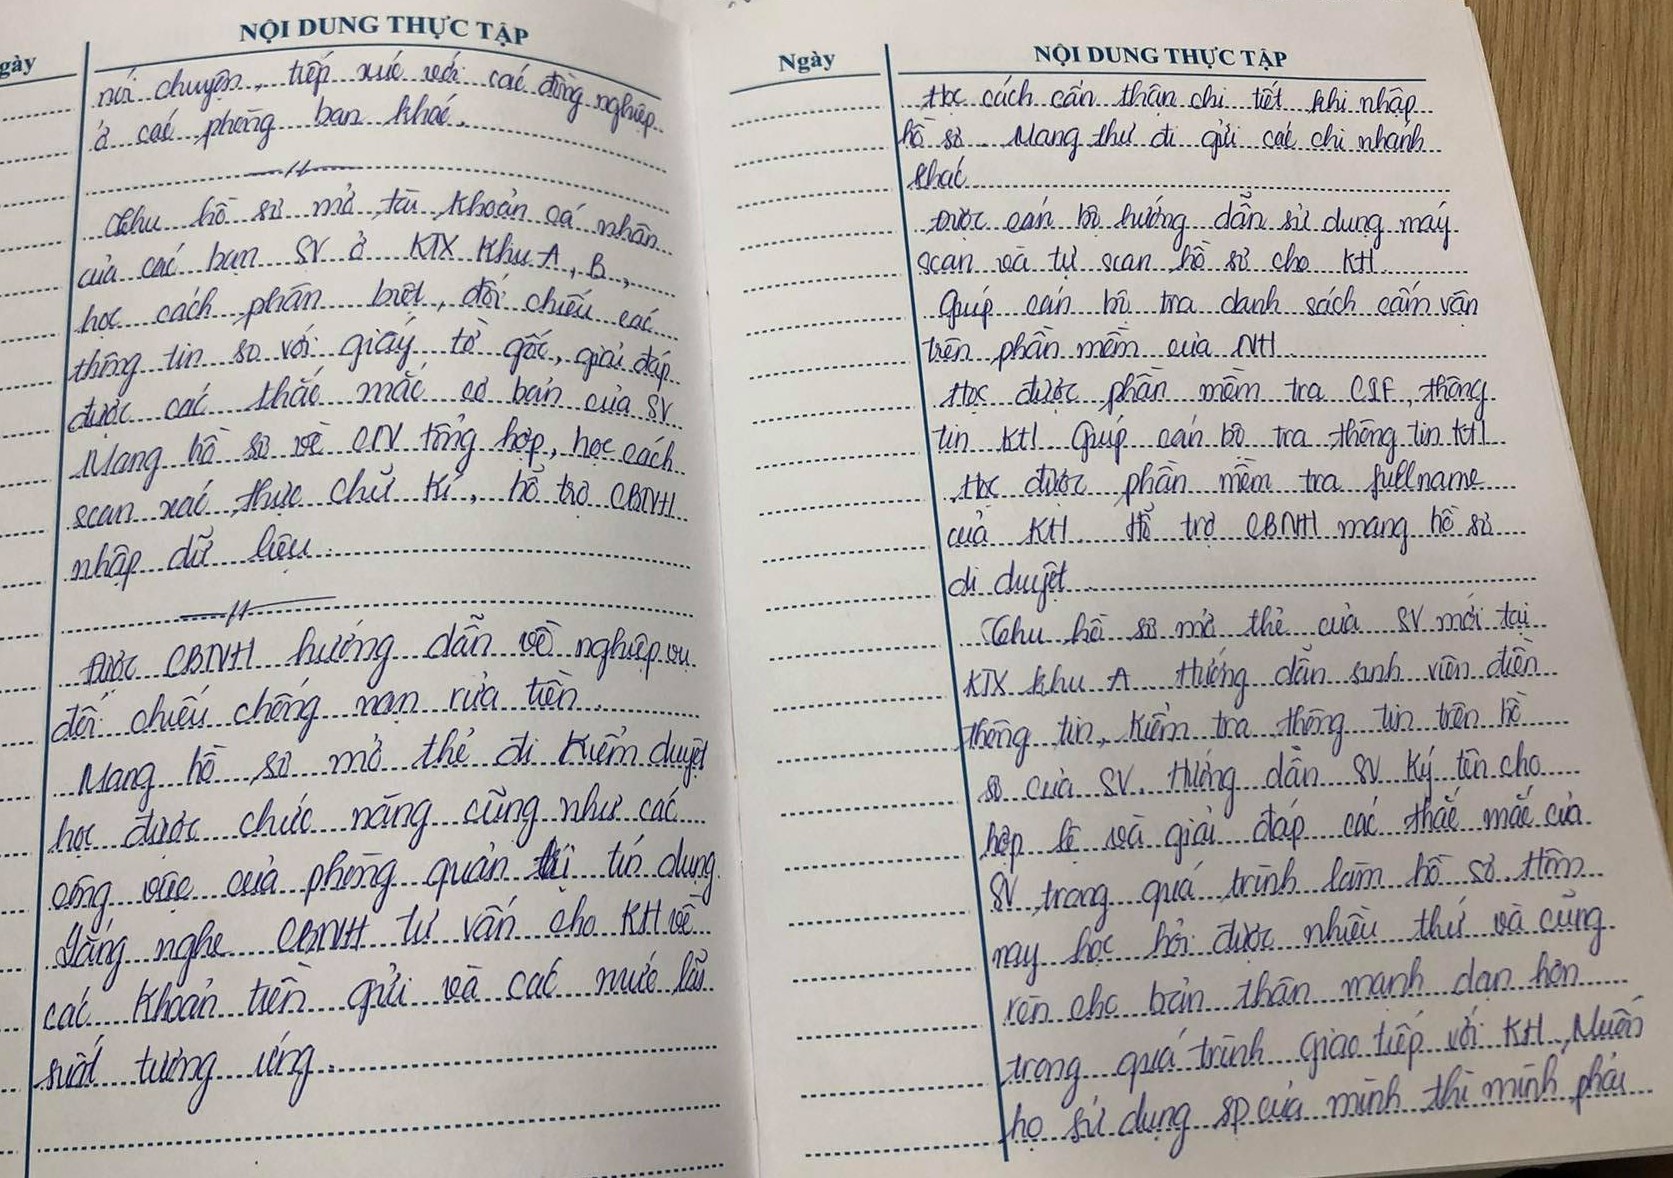 gày
NỘI DUNG THỰC TẬP
nói chuyện, tiếp xúc với các đồng nghiệp
ở các phòng ban khác.
Thu hồ sơ mở tài khoản cá nhân
của các bạn SV ở KTX Khu A, B,
học cách phân biệt, đối chiếu các
thông tin so với giấy tờ gốc, giải đáp
được các thắc mắc cơ bản của SV
Mang hồ sơ về CN tổng hợp, học cách
scan xác thực chữ kí, hỗ trợ CBNH
nhập dữ liệu.
Được CBNH hướng dẫn về nghiệp vụ
đối chiếu chống nạn rửa tiền.
Mang hồ sơ mở thẻ đi kiểm duyệt
học được chức năng cũng như các
công việc của phòng quản trị tín dụng
Lắng nghe CBNH tư vấn cho KH về
các khoản tiền gửi và các mức lãi
suất tương ứng.
Ngày
NỘI DUNG THỰC TẬP
Học cách cẩn thận chi tiết khi nhập
hồ sơ. Mang thư đi gửi các chi nhánh
khác
Được cán bộ hướng dẫn sử dụng máy
scan và tự scan hồ sơ cho KH
Giúp cán bộ tra danh sách cấm vận
trên phần mềm của NH
Học được phần mềm tra CIF, thông
tin KH. Giúp cán bộ tra thông tin KH
Học được phần mềm tra fullname
của KH. Hỗ trợ CBNH mang hồ sơ
di duyệt
Thu hồ sơ mở thẻ của SV mới tại
KTX khu A. Hướng dẫn sinh viên điền
thông tin, kiểm tra thông tin trên hồ
sơ của SV. Hướng dẫn SV Ký tên cho
hợp lệ và giải đáp các thắc mắc của
SV trong quá trình làm hồ sơ. Hôm
nay học hỏi được nhiều thứ và cũng
rèn cho bản thân mạnh dạn hơn
trong quá trình giao tiếp với KH, Muốn
họ sử dụng sp của mình thì mình phải